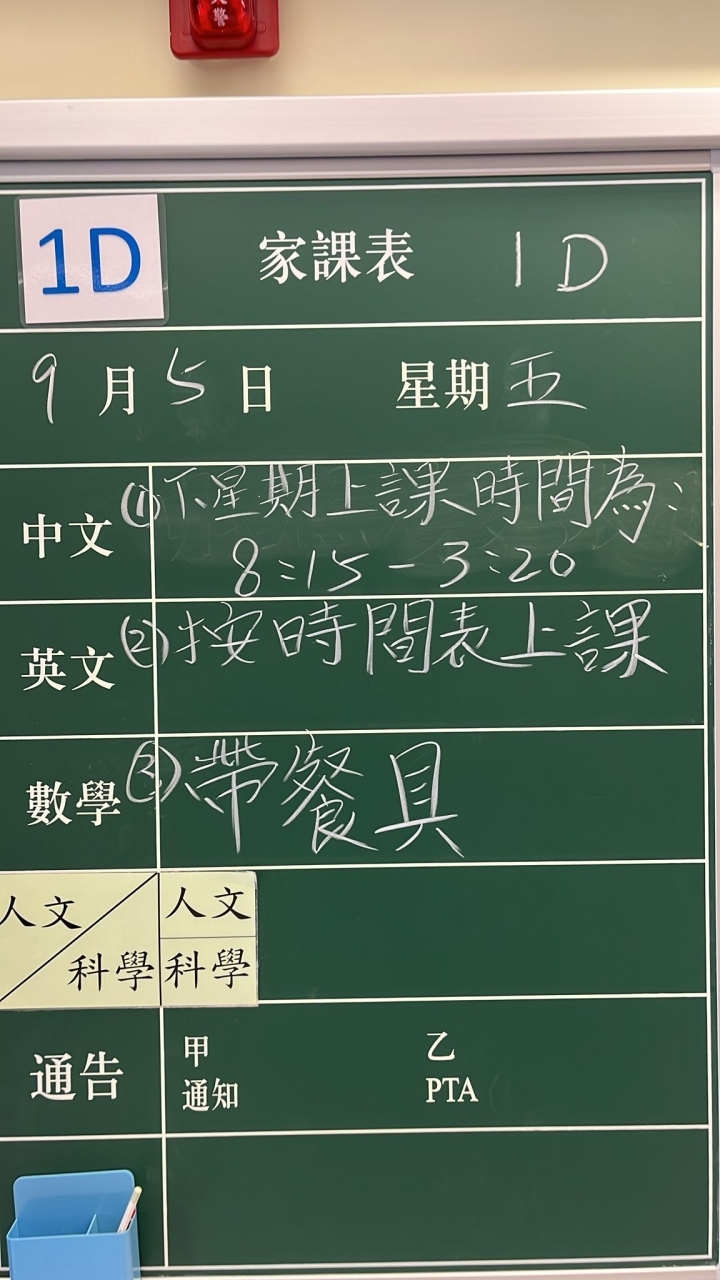 火警
1D
家課表 1D
9月5日 星期五
中文 (1)下星期上課時間為:
8:15-3:20
英文 (2)按時間表上課
數學 (3)帶餐具
人文/科學 人文
科學
通告 甲 乙
通知 PTA